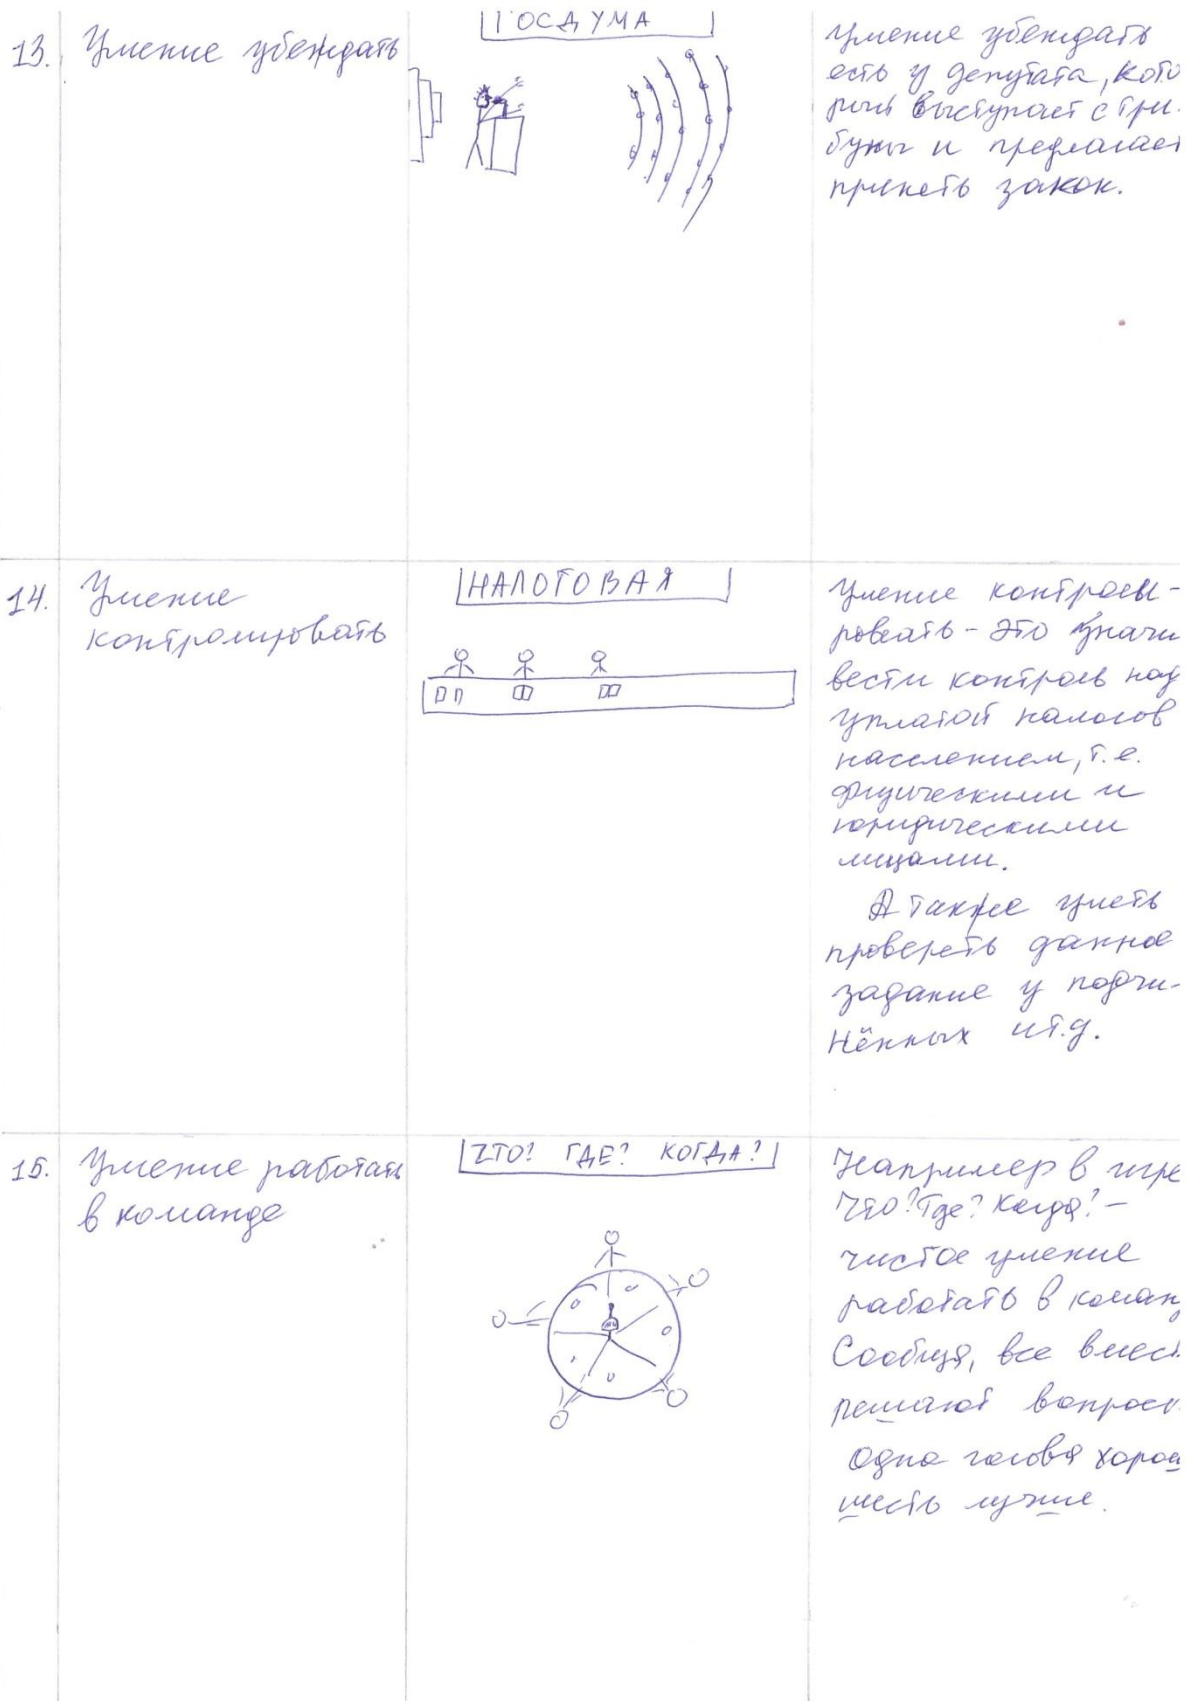 13.
Умение убеждать
ГОСДУМА
Умение убеждать
есть у депутата, кото
рый выступает с три-
буны и предлагает
принеть закон.
14.
Умение
контролировать
НАЛОГОВАЯ
Умение контроли-
ровать - это значи
вести контроль над
уплатой налогов
населением, т.е.
физическими и
юридическими
лицами.
А также уметь
провереть данное
задание у подчи-
нённых ит.д.
15.
Умение работать
в команде
ЧТО? ГДЕ? КОГДА?
Например в игре
Что? Где? Когда? -
чистое умение
работать в коман
Сообща, все вмест
решают вопросы
Одна голова хорош
шесть лучше.